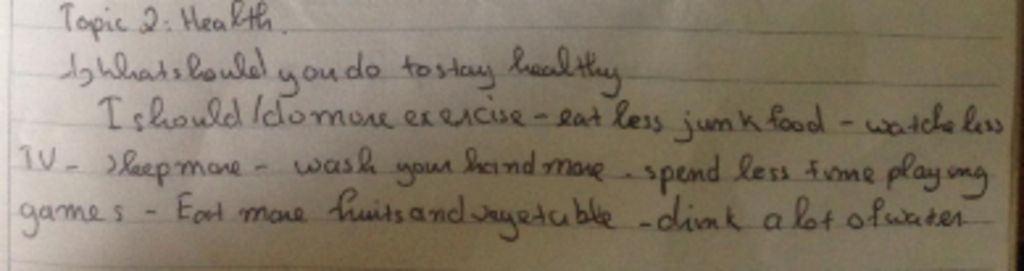 Topic 2: Health.
1, What should you do to stay healthy
I should / do more exercise - eat less junk food - watche less
TV - sleep more - wash your hand more . spend less time playing
games - Eat more fruits and vegetable - drink a lot of water